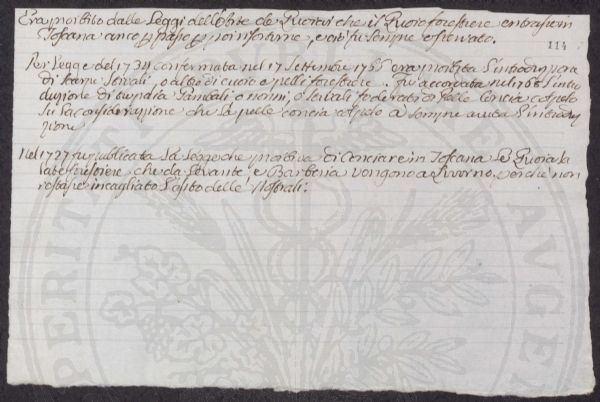 Era proibito dalle Leggi dell'Arte de Quoiai che il Quoio forestiere entrasse in
Toscana anco p passo p poi sortirne, e così fu sempre osservato.
114
Per Legge del 1734 confermata nel 17 Settembre 1766 era proibita l'introduzione
di scarpe, Stivali, o altro di cuoio e pelli forestiere. Fu accordata nel 1768 l'intro
duzione di Gambali o nomini, o stivali foderati di pelle concia col pelo
su la considerazione che la pelle concia col pelo à sempre avuta l'introdu
zione
Nel 1727 fu publicata la Legge che proibiva di conciare in Toscana le Quoia sa
late forestiere che da Levante, e Barberia vengono a Livorno, perchè non
restasse incagliato l'esito delle Nostrali:
PERITAT AUGEN